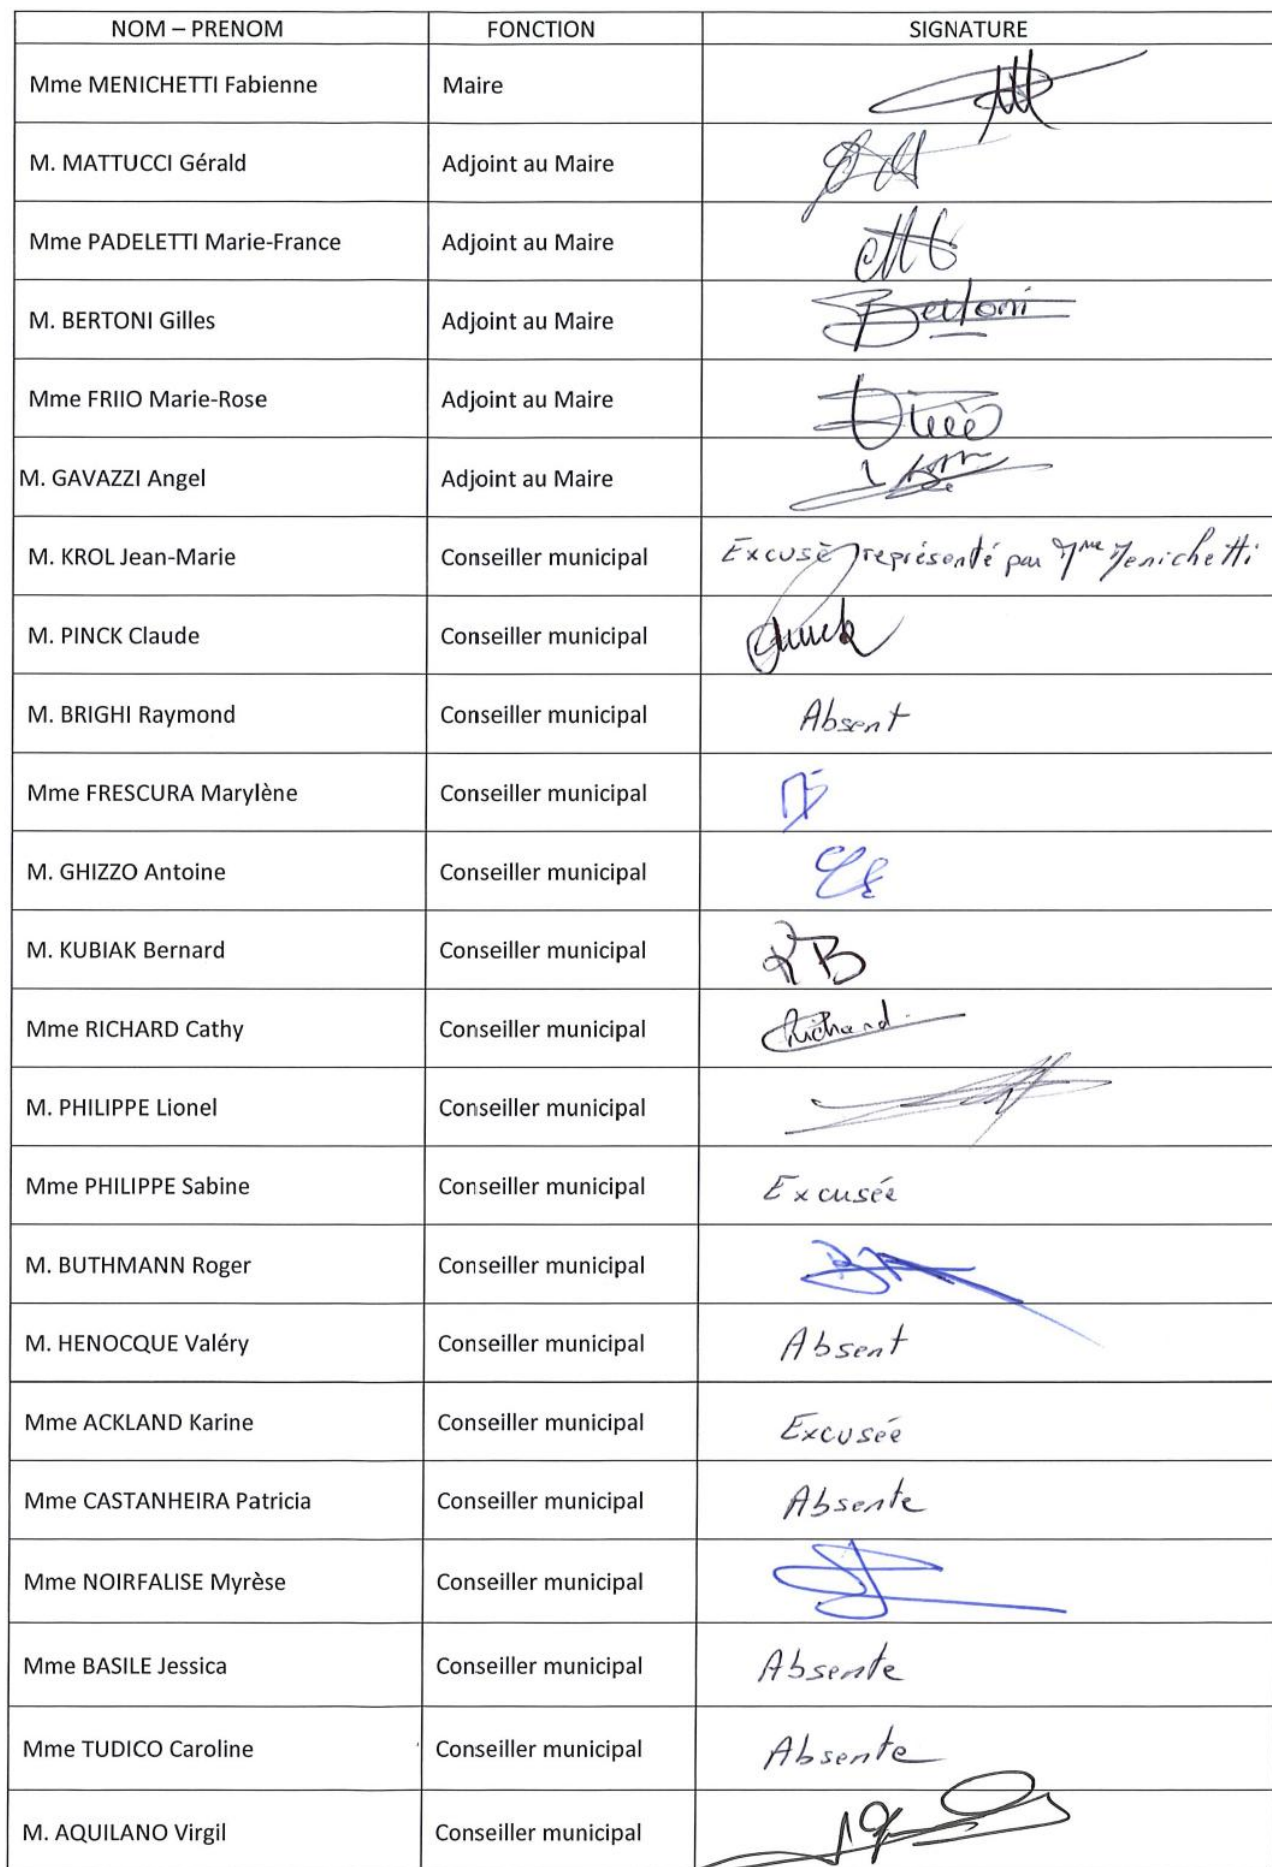 NOM – PRENOM FONCTION SIGNATURE
Mme MENICHETTI Fabienne Maire
M. MATTUCCI Gérald Adjoint au Maire
Mme PADELETTI Marie-France Adjoint au Maire
M. BERTONI Gilles Adjoint au Maire Bertoni
Mme FRIIO Marie-Rose Adjoint au Maire
M. GAVAZZI Angel Adjoint au Maire
M. KROL Jean-Marie Conseiller municipal Excusé représenté par Mme Menichetti
M. PINCK Claude Conseiller municipal
M. BRIGHI Raymond Conseiller municipal Absent
Mme FRESCURA Marylène Conseiller municipal
M. GHIZZO Antoine Conseiller municipal
M. KUBIAK Bernard Conseiller municipal KB
Mme RICHARD Cathy Conseiller municipal Richard
M. PHILIPPE Lionel Conseiller municipal
Mme PHILIPPE Sabine Conseiller municipal Excusée
M. BUTHMANN Roger Conseiller municipal
M. HENOCQUE Valéry Conseiller municipal Absent
Mme ACKLAND Karine Conseiller municipal Excusée
Mme CASTANHEIRA Patricia Conseiller municipal Absente
Mme NOIRFALISE Myrèse Conseiller municipal
Mme BASILE Jessica Conseiller municipal Absente
Mme TUDICO Caroline Conseiller municipal Absente
M. AQUILANO Virgil Conseiller municipal